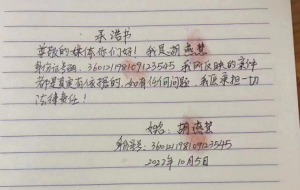 承浩书
尊敬的媒体你们好！我是胡燕梦
身份证号码：360121198109123545 我所反映的案件
都是真实有依据的，如有任何问题，我愿承担一切
法律责任！
姓名：胡燕梦
身份证号：360121198109123545
2022年10月5日